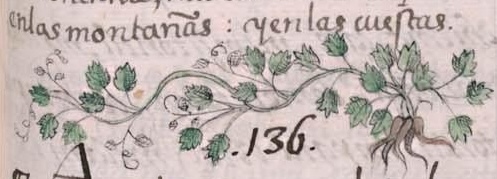 enlas montañas : yenlas cuestas.
.136.